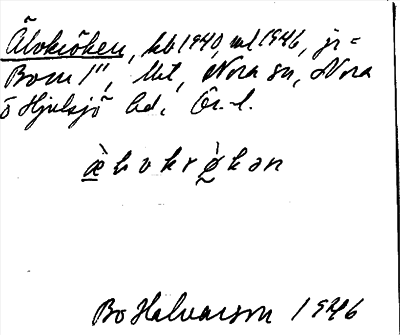 Älvkröken, kb 1940, ml 1946, jr=
Bom 1", Mt, Nora sn, Nora
o Hjulsjö bd, Ör. l.
æ̀ l v k r ø̀ k ə n
Bo Halvarson 1946